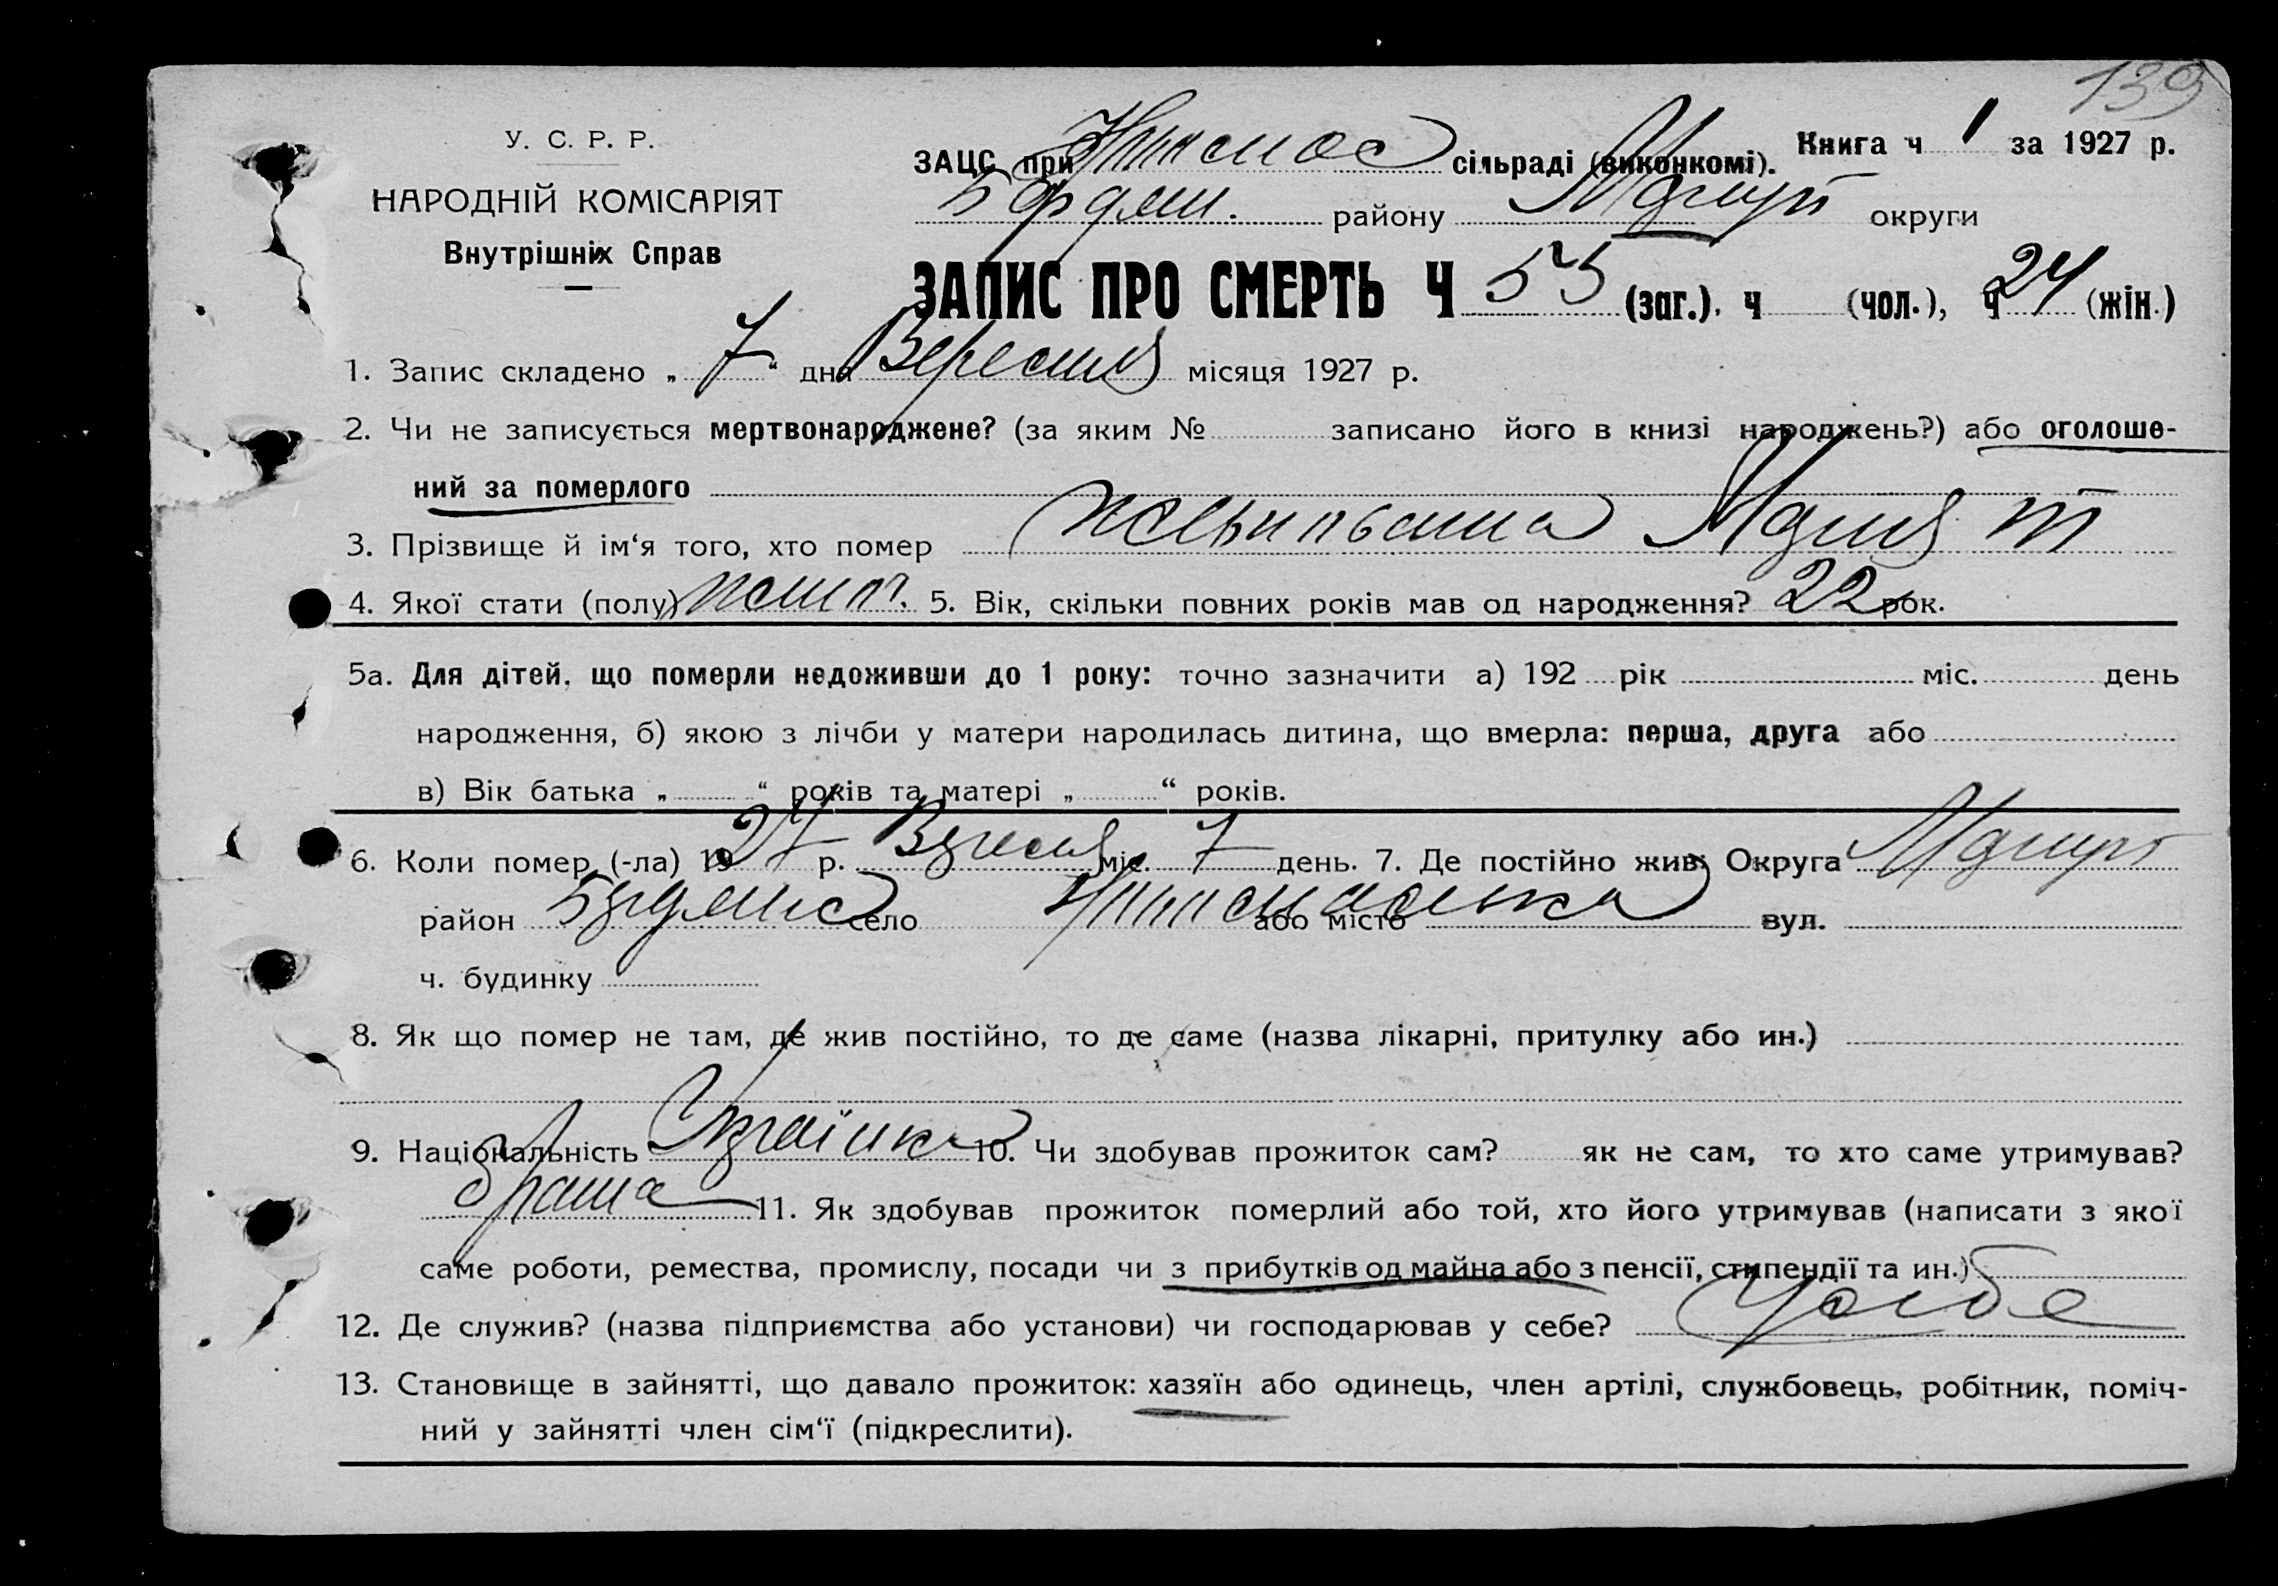 139
У. С. Р. Р.
НАРОДНІЙ КОМІСАРІЯТ
Внутрішніх Справ
Книга ч 1 за 1927 р.
ЗАЦС при сільраді (виконкомі).
району округи
ЗАПИС ПРО СМЕРТЬ Ч 55 (заг.), ч (чол.), ч 24 (жін.)
1. Запис складено „ 7 “ дня Вересня місяця 1927 р.
2. Чи не записується мертвонароджене? (за яким № записано його в книзі народжень?) або оголоше-
ний за померлого
3. Прізвище й ім‘я того, хто помер Мария
4. Якої стати (полу) 5. Вік, скільки повних років мав од народження? 22 рок.
5а. Для дітей, що померли недоживши до 1 року: точно зазначити а) 192 рік міс. день
народження, б) якою з лічби у матери народилась дитина, що вмерла: перша, друга або
в) Вік батька „ “ років та матері „ “ років.
6. Коли помер (-ла) 1927 р. Вересня міс. 7 день. 7. Де постійно жив: Округа
район село або місто вул.
ч. будинку
8. Як що помер не там, де жив постійно, то де саме (назва лікарні, притулку або ин.)
9. Національність Україінка 10. Чи здобував прожиток сам? як не сам, то хто саме утримував?
11. Як здобував прожиток померлий або той, хто його утримував (написати з якої
саме роботи, ремества, промислу, посади чи з прибутків од майна або з пенсії, стипендії та ин.)
12. Де служив? (назва підприємства або установи) чи господарював у себе? У себе
13. Становище в зайнятті, що давало прожиток: хазяїн або одинець, член артілі, службовець, робітник, поміч-
ний у зайнятті член сім‘ї (підкреслити).